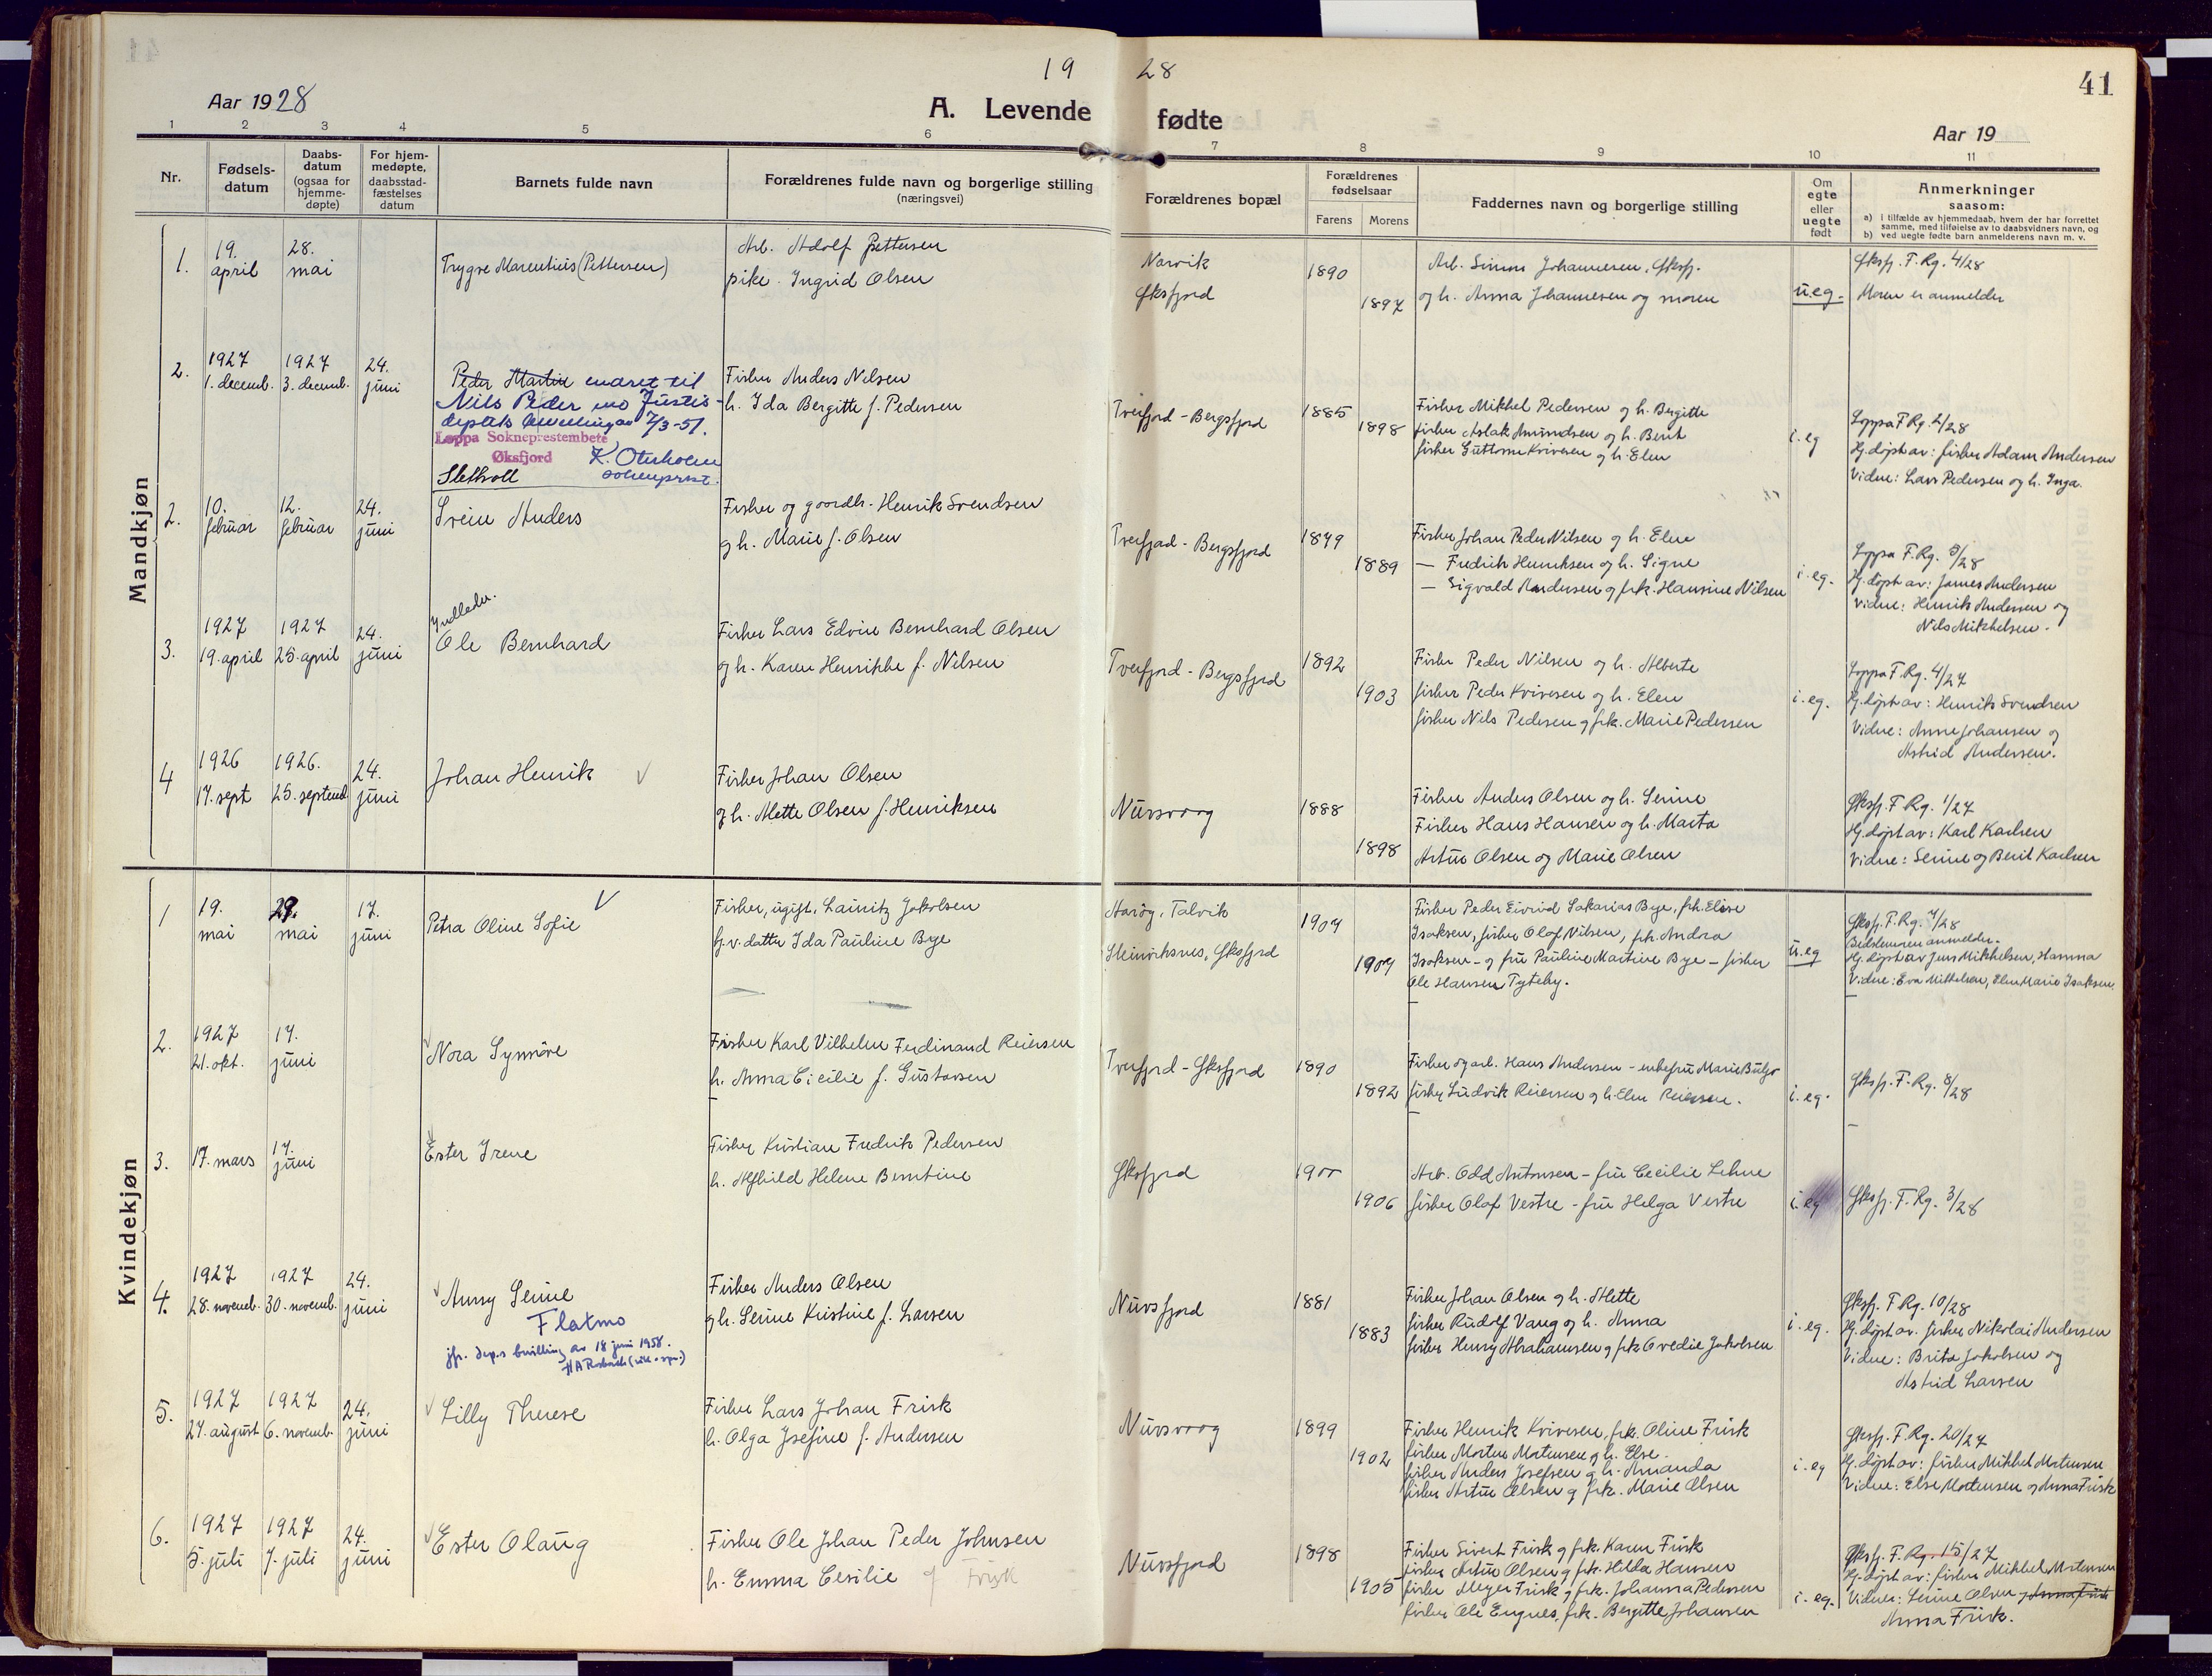 41
19 28
Aar 1928
A. Levende fødte
Aar 19
1 2 3 4 5 6 7 8 9 10 11
Nr.
Fødsels-datum
Daabs-datum (ogsaa for hjemme-døpte)
For hjem-medøpte, daabsstad-fæstelses datum
Barnets fulde navn
Forældrenes fulde navn og borgerlige stilling (næringsvei)
Forældrenes bopæl
Forældrenes fødselsaar
Farens Morens
Faddernes navn og borgerlige stilling
Om egte eller uegte født
Anmerkninger
saasom:
a) i tilfælde av hjemmedaab, hvem der har forrettet
samme, med tilføielse av to daabsvidners navn, og
b) ved uegte fødte barn anmelderens navn m. v.
Mandkjøn
1. 19. april 28. mai
Trygve Marentius (Pettersen)
Arb. Adolf Pettersen
pike Ingrid Olsen
Narvik
Øksfjord
1890
1897
Arb. Simon Johannesen, Øksfj.
og h. Anna Johannesen og moren
u.eg.
Øksfj. F. Rg. 4/28
Moren er anmelder
2. 1927 1. decemb. 1927 3. decemb. 24. juni
Peder Martin endret til
Nils Peder
7/3-51.
Loppa Sokneprestembete
Øksfjord
K. Oterholm
sokneprest.
Sletvoll
Fisker Anders Nilsen
h. Ida Bergitte f. Pedersen
Tverfjord - Bergsfjord
1885
1898
Fisker Mikkel Pedersen og h. Bergitte
fisker Aslak Amundsen og h. Berit
fisker Guttorm Kvivesen og h. Elen
i. eg
Loppa F Rg. 2/28
Hj. døpt av: fisker Adam Andersen
Vidne: Lars Pedersen og h. Inga.
2. 10. februar 12. februar 24. juni
Svein Anders
Fisker og gaardbr. Henrik Svendsen
og h. Marie f. Olsen
Tverfjord - Bergsfjord
1879
1889
Fisker Johan Peder Nilsen og h. Elen
— Fredrik Henriksen og h. Signe
— Sigvald Andersen og frk. Hansine Nilsen
i. eg.
Loppa F. Rg. 3/28
Hj. døpt av: James Andersen
Vidne: Henrik Andersen og
Nils Mikkelsen.
3. 1927 19. april 1927 25. april 24. juni
Ole Bernhard
Fisker Lars Edvin Bernhard Olsen
og h. Karen Henrikke f. Nilsen
Tverfjord - Bergsfjord
1892
1903
Fisker Peder Nilsen og h. Alberte
fisker Peder Kvivesen og h. Elen
fisker Nils Pedersen og frk. Marie Pedersen
i. eg.
Loppa F. Rg. 4/27
Hj. døpt av: Henrik Svendsen
Vidne: Anne Johansen og
Astrid Andersen.
4 1926 17. sept 1926. 25. septemb 24. juni
Johan Henrik
Fisker Johan Olsen
og h. Mette Olsen f. Henriksen
Nuvsvaag
1888
1898
Fisker Anders Olsen og h. Serine
Fisker Hans Hansen og h. Marta
Artur Olsen og Marie Olsen
Øksfj. F Rg. 1/27
Hj. døpt av: Karl Karlsen
Vidne: Serine og Berit Karlsen
Kvindekjøn
1 19. mai 29. mai 17. juni
Petra Oline Sofie
Fisker, ugift, Lauritz Jakobsen
fhv. datter Ida Pauline Bye
Talvik
Steinviksnes, Øksfjord
1907
1909
Fisker Peder Eivind Sakarias Bye, frk. Elise
Isaksen, fisker Olaf Nilsen, frk. Andra
Isaksen - og fru Pauline Martine Bye - fisker
Ole Hansen Tyteby.
u.eg
Øksfj. F. Rg. 7/28
Bedstemoren anmelder.
Hj. døpt av Jens Mikkelsen, Hamna
Vidne: Eva Mikkelsen, Elen Marie Isaksen.
2. 1927 21. okt. 17. juni
Nora Synnöve
Fisker Karl Vilhelm Ferdinand Reiersen
h. Anna Cicilie f. Gustavsen
Tverfjord - Øksfjord
1890
1892
Fisker og arb. Hans Andersen - enkefru Marie
fisker Ludvik Reiersen og h. Elen Reiersen.
i. eg.
Øksfj. F. Rg. 8/28
3. 17. mars 17. juni
Ester Irene
Fisker Kristian Fredrik Pedersen
h. Alfhild Helene Berntine
Øksfjord
1900
1906
Arb. Odd Antonsen - fru Cecilie Lehne
fisker Olaf Vestre - fru Helga Vestre
i. eg
Øksfj. F. Rg. 3/28
4. 1927 28. novemb. 1927 30. novemb. 24. juni
Anny Serine
Flatmo
jfr. dep.s bevilling av 18 juni 1958.
Fisker Anders Olsen
og h. Serine Kristine f. Larsen
Nuvsfjord
1881
1883
Fisker Johan Olsen og h. Mette
fisker Rudolf Vang og h. Anna
fisker Henry Abrahamsen og frk Ovedie Jakobsen
i. eg.
Øksfj. F. Rg. 10/28
Hj. døpt av. fisker Nikolai Andersen
Vidne: Brita Jakobsen og
Astrid Larsen
5. 1927 27. august 1927 6. novemb. 24. juni
Lilly Therese
Fisker Lars Johan Frisk
h. Olga Josefine f. Andersen
Nuvsvaag
1899
1902
Fisker Henrik Kvivesen, frk. Oline Frisk
fisker Morten Mortensen og h. Else.
fisker Anders Josefsen og h. Amanda
fisker Artur Olsen og frk. Marie Olsen
i. eg
Øksfj. F. Rg. 20/27
Hj. døpt av: fisker Mikkel Mortensen
Vidne: Else Mortensen og Anna Frisk
6. 1927 5. juli 1927 7. juli 24. juni
Ester Olaug
Fisker Ole Johan Peder Johnsen
h. Emma Cesilie f Frisk
Nuvsfjord
1898
1905
Fisker Sivert Frisk og frk. Karen Frisk
fisker Artur Olsen og frk. Hilda Hansen
fisker Meyer Frisk og frk. Johanna Pedersen
fisker Ole Engnes, frk. Bergitte Johansen
i. eg.
Øksfj. F. Rg. 15/27
Hj. døpt av: fisker Mikkel Mortensen
Vidner: Serine Olsen og Anna Frisk
Anna Frisk.